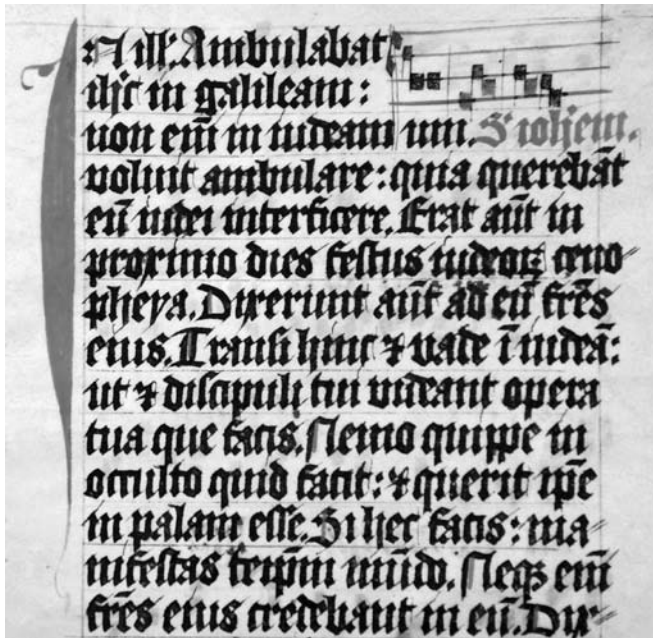 In ill'. Ambulabat
ihc in galileam:
non em̄ in iudeam um. S' iohem.
voluit ambulare: quia querebāt
eū iudei interficere. Erat aūt in
proximo dies festus iudeoꝝ ceno
pheya. Dixerunt aūt ad eū fr̄es
eius. Transi hinc ⁊ vade ī iudeā:
ut ⁊ discipuli tui videant opera
tua que facis. Nemo quippe in
occulto quid facit: ⁊ querit ip̄e
in palam esse. Si hec facis: ma
nifestas teip̄m mūdo. Neqꝫ em̄
fr̄es eius credebant in eū. Dix